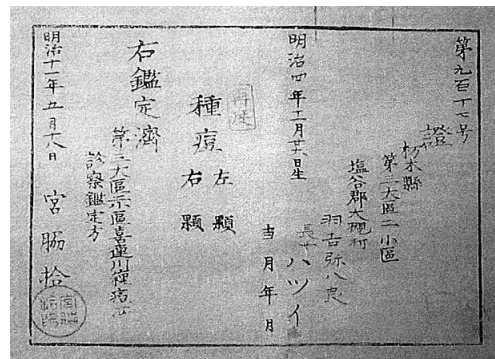 第九百十七号
證
栃木縣
第三大區二小區
塩谷郡大槻村
羽吉弥八良
長女 ハツイ
当月年月
明治四年十二月廿六日生
再渡
種痘 左 顆
右 顆
右鑑定濟
第三大區
喜連川種痘
診察鑑定方
明治十一年五月十八日
宮膓拾